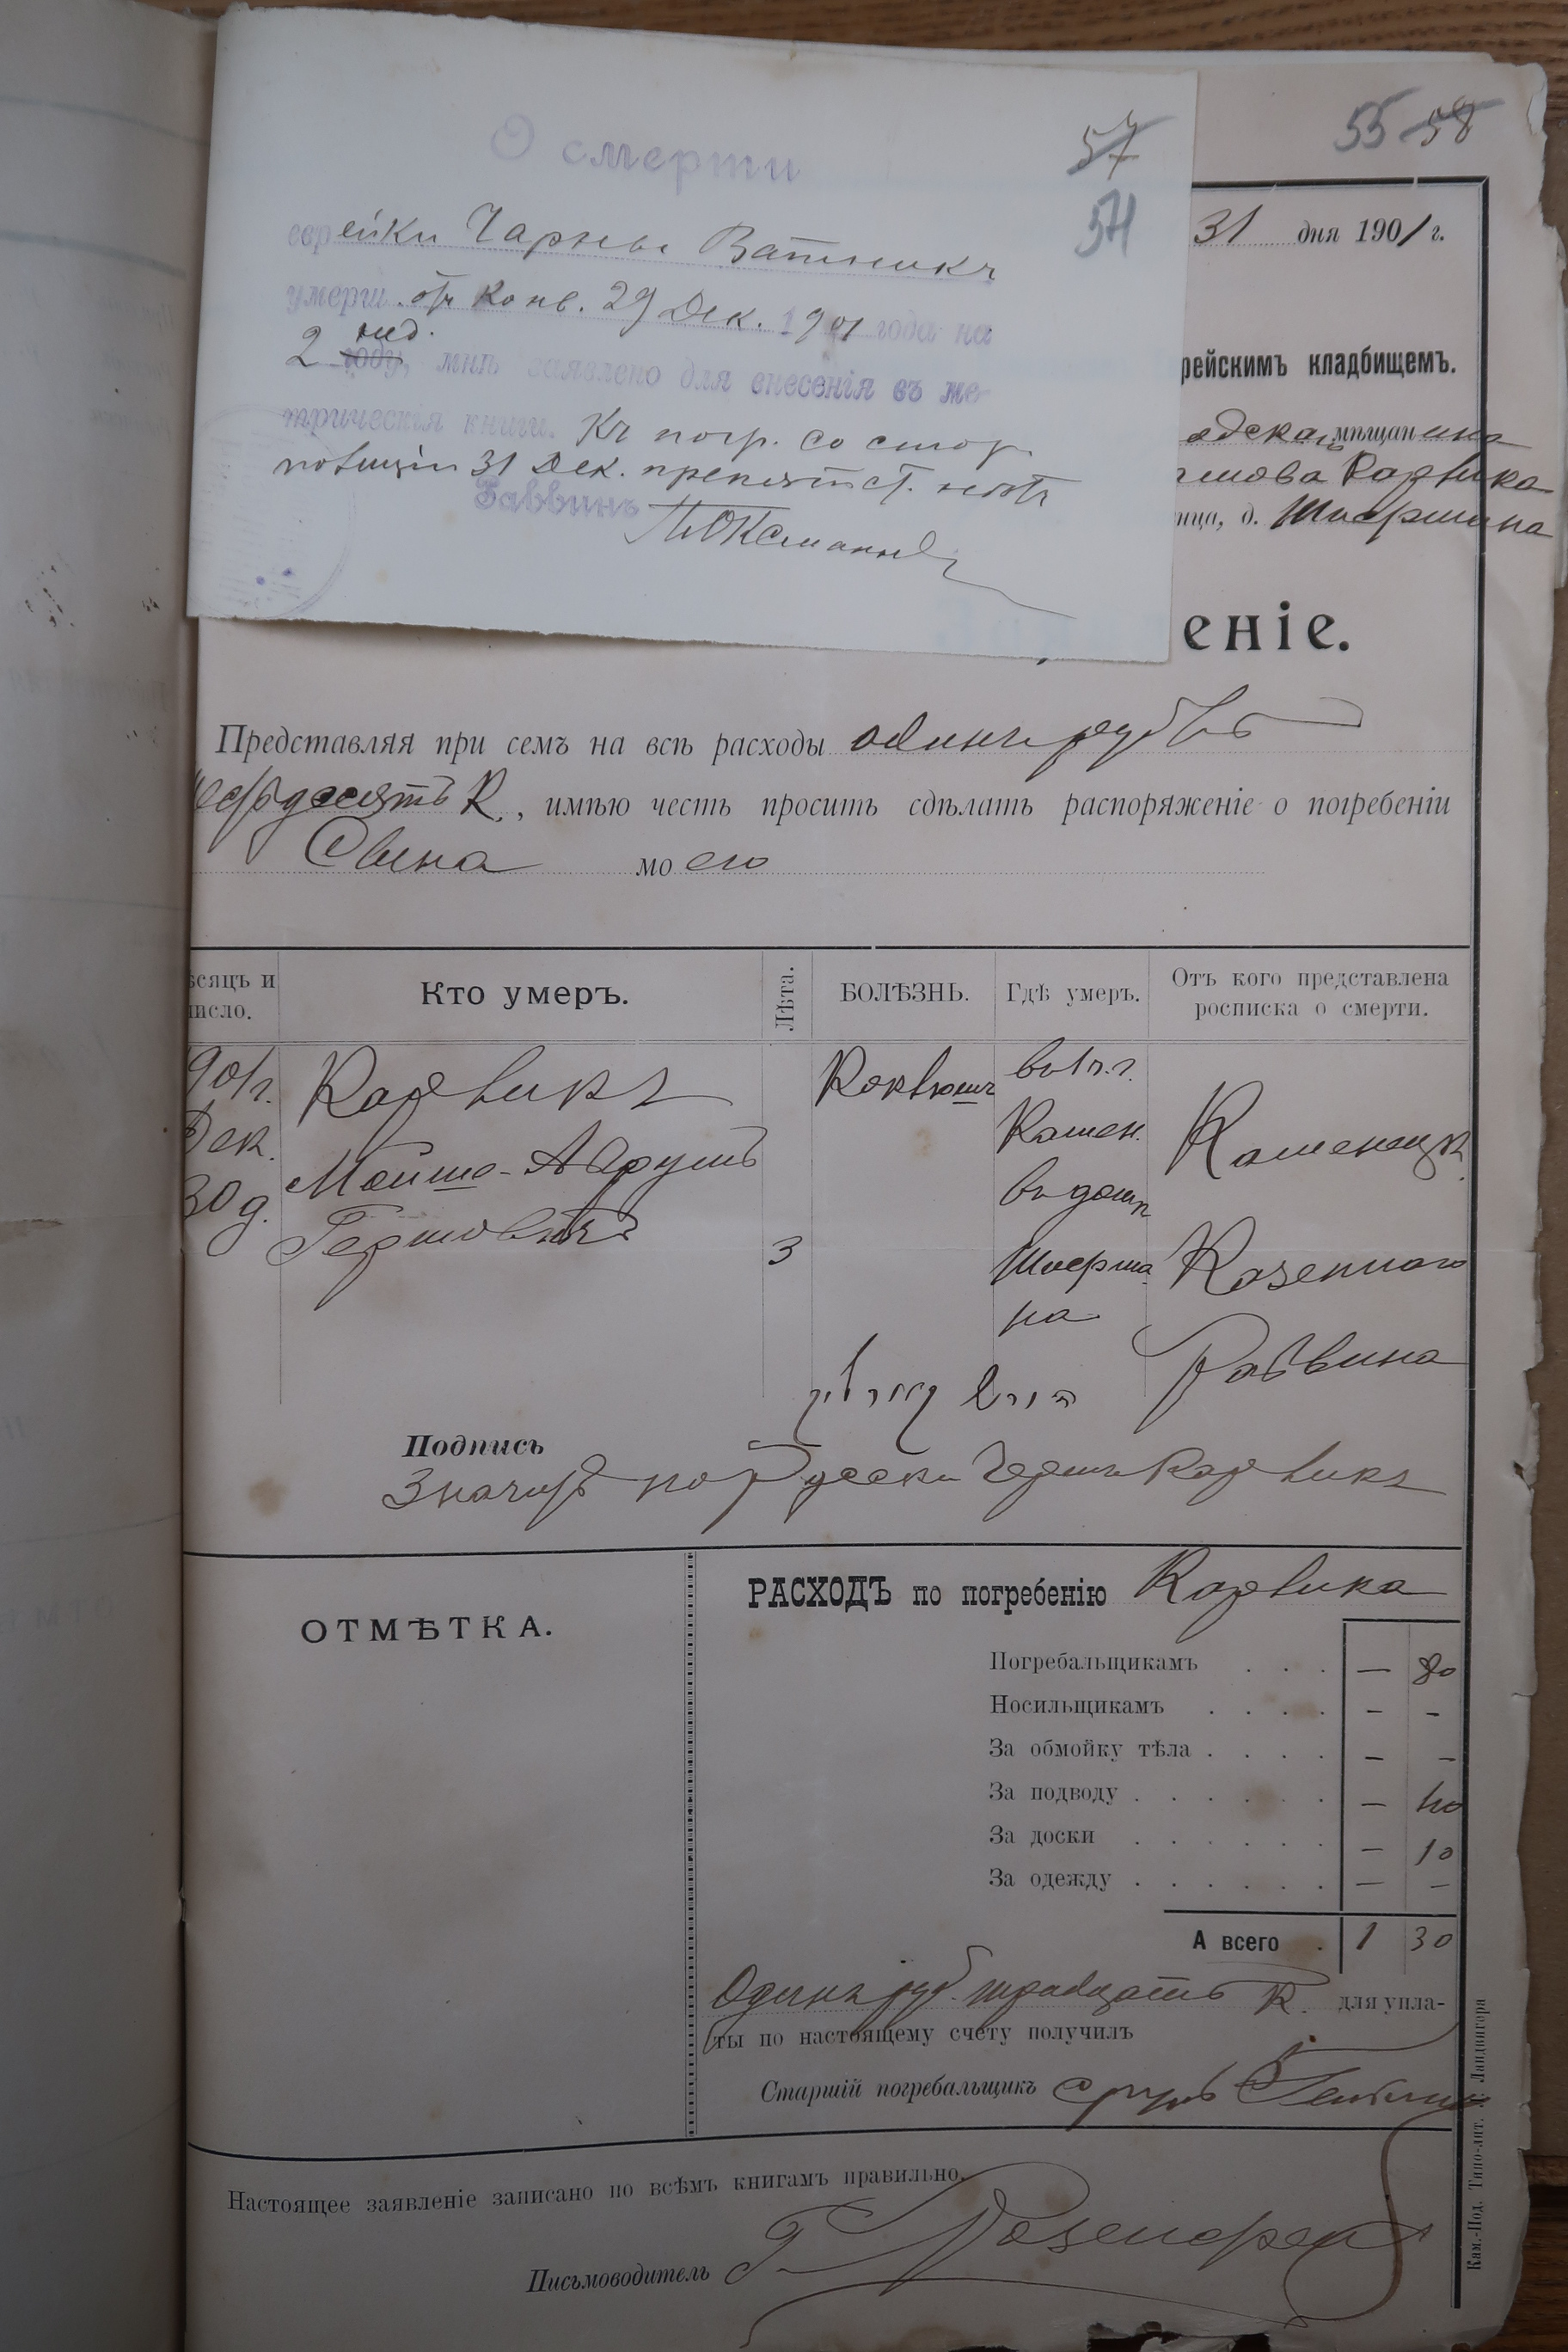 О смерти
57
54
еврейки Чарны Ватникъ
умерш. отъ конв. 29 Дек. 1901 года на
2 нед. году, мнѣ заявлено для внесенія въ ме-
трическія книги. Къ погр. со стор.
полиціи 31 Дек. препятст. нѣтъ
Раввинъ
55 58
31 дня 1901 г.
рейскимъ кладбищемъ.
мѣщанина
шова Кордика
ица, д. Шпермана
еніе.
Представляя при семъ на всѣ расходы одинъ рубль
десять К., имѣю честь просить сдѣлать распоряженіе о погребеніи
Сына моего
ѣсяцъ и
исло.
Кто умеръ.
Лѣта.
БОЛѢЗНЬ.
Гдѣ умеръ.
Отъ кого представлена
росписка о смерти.
901г.
Дек.
30 д.
Мойше-
Гершовичъ
3
Коклюшъ
Камен.
въ домѣ
Шперма
на
Каменецк.
Казеннаго
Раввина
Подпись
Значитъ по Русски Гершъ
РАСХОДЪ по погребенію
ОТМѢТКА.
Погребальщикамъ . . . — 80
Носильщикамъ . . . . - -
За обмойку тѣла . . . . - -
За подводу . . . . . . — 40
За доски . . . . . . — 10
За одежду . . . . . . — -
А всего . 1 30
Одинъ руб. тридцать К. для упла-
ты по настоящему счету получилъ
Старшій погребальщикъ
Настоящее заявленіе записано по всѣмъ книгамъ правильно.
Письмоводитель Г Розенфел
Кам.-Под. Типо-лит. Ландвигера